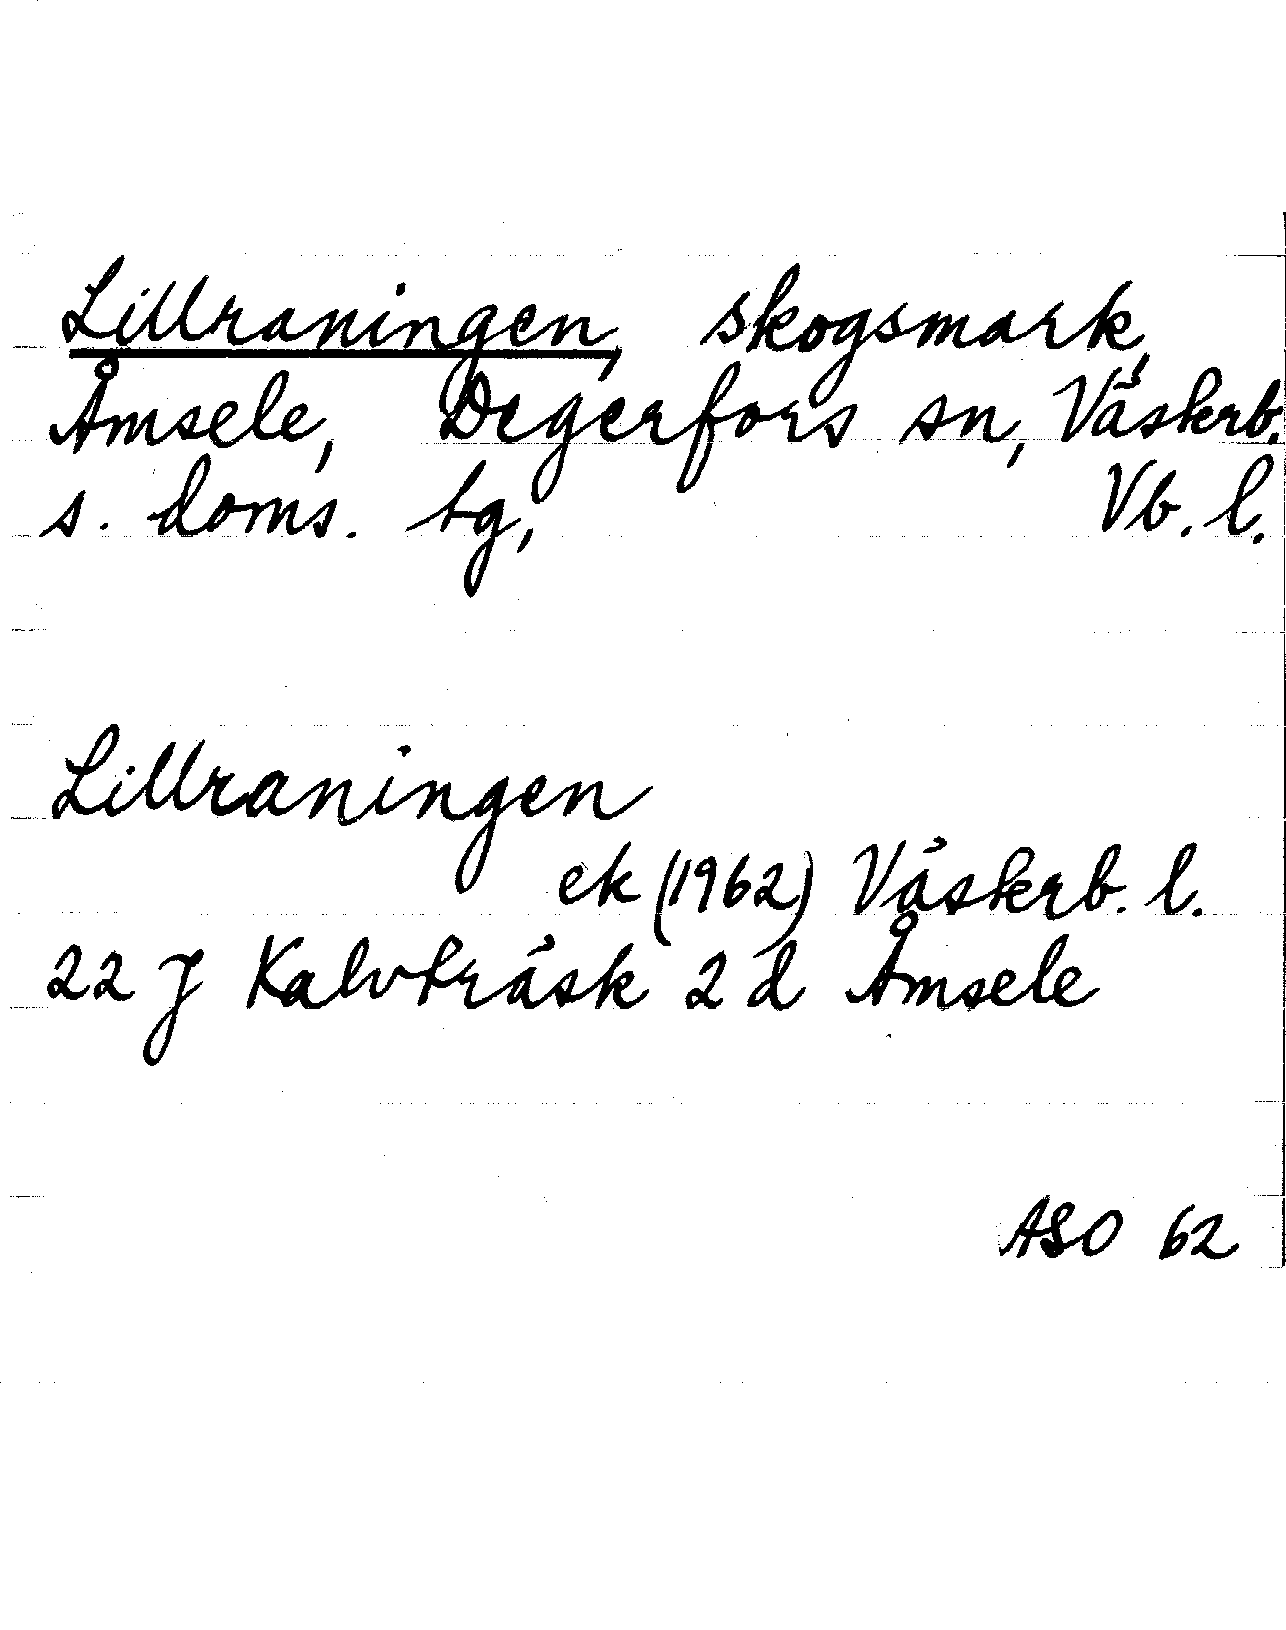 Lillraningen, skogsmark,
Åmsele, Degerfors sn, Västerb.
s. doms. tg, Vb. l.
Lillraningen
ek (1962) Västerb. l.
22 J Kalvträsk 2 d Åmsele
ASO 62